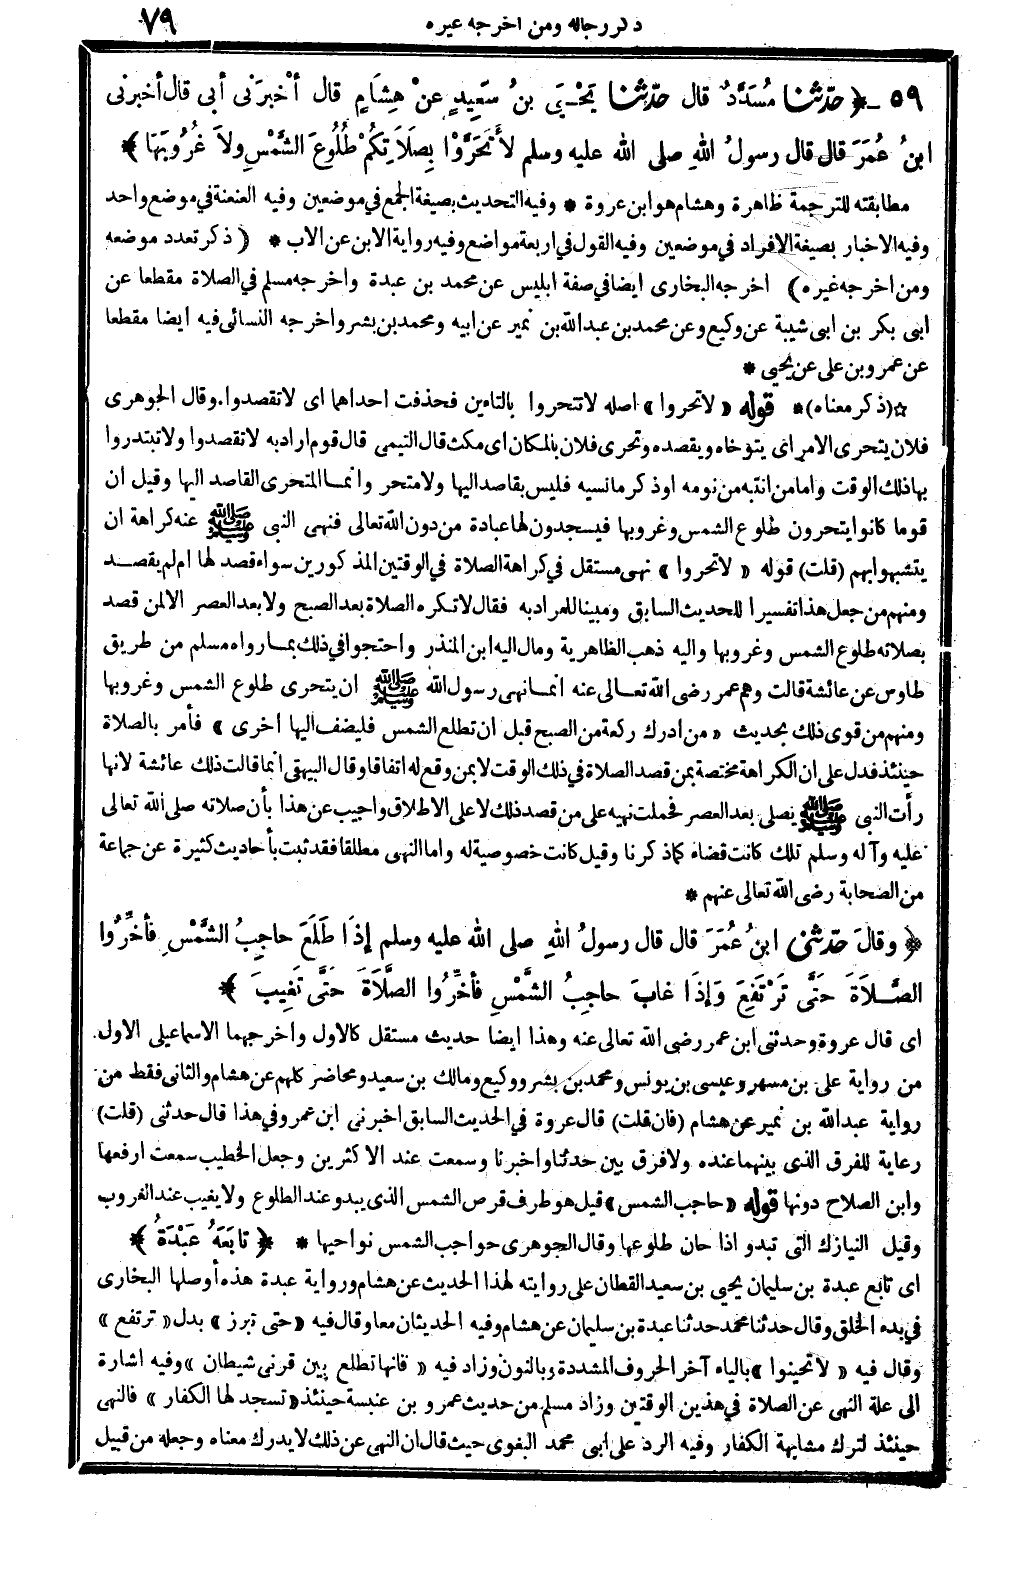 ذكر رجاله ومن اخرجه غيره
٧٩
٥٩ ـ ﴿ حدّثنا مُسَدَّدٌ قال حدّثنا يَحْيَى بنُ سَعِيدٍ عنْ هِشَامٍ قال أخْبرَنى أبى قال أخبرنى
ابنُ عُمَرَ قال قال رسولُ اللهِ صلى الله عليه وسلم لاَ تَحَرَّوْا بِصَلاَتِكُمْ طُلُوعَ الشَّمْسِ ولاَ غُرُوبَهَا ﴾
مطابقته للترجمة ظاهرة وهشام هو ابن عروة * وفيه التحديث بصيغة الجمع في موضعين وفيه العنعنة في موضع واحد
وفيه الاخبار بصيغة الافراد في موضعين وفيه القول في اربعة مواضع وفيه رواية الابن عن الاب * ( ذكر تعدد موضعه
ومن اخرجه غيره ) اخرجه البخارى ايضا في صفة ابليس عن محمد بن عبدة واخرجه مسلم في الصلاة مقطعا عن
ابى بكر بن ابى شيبة عن وكيع وعن محمد بن عبد الله بن نمير عن ابيه ومحمد بن بشر واخرجه النسائى فيه ايضا مقطعا
عن عمرو بن على عن يحيى *
☆(ذكر معناه)* قوله « لا تحروا » اصله لا تتحروا بالتاءين فحذفت احداهما اى لا تقصدوا. وقال الجوهرى
فلان يتحرى الامر اى يتوخاه ويقصده وتحرى فلان بالمكان اى مكث قال التيمى قال قوم اراد به لا تقصدوا ولا تبتدروا
بها ذلك الوقت واما من انتبه من نومه او ذكر ما نسيه فليس بقاصد اليها ولا متحر وانما المتحرى القاصد اليها وقيل ان
قوما كانوا يتحرون طلوع الشمس وغروبها فيسجدون لها عبادة من دون الله تعالى فنهى النبى ﷺ عنه كراهة ان
يتشبهوا بهم (قلت) قوله « لا تحروا » نهى مستقل في كراهة الصلاة في الوقتين المذكورين سواء قصد لها ام لم يقصد
ومنهم من جعل هذا تفسيرا للحديث السابق ومبينا للمراد به فقال لا تكره الصلاة بعد الصبح ولا بعد العصر الا لمن قصد
بصلاته طلوع الشمس وغروبها واليه ذهب الظاهرية ومال اليه ابن المنذر واحتجوا في ذلك بما رواه مسلم من طريق
طاوس عن عائشة قالت وهم عمر رضى الله تعالى عنه انما نهى رسول الله ﷺ ان يتحرى طلوع الشمس وغروبها
ومنهم من قوى ذلك بحديث « من ادرك ركعة من الصبح قبل ان تطلع الشمس فليضف اليها اخرى » فأمر بالصلاة
حينئذ فدل على ان الكراهة مختصة بمن قصد الصلاة في ذلك الوقت لا بمن وقع له اتفاقا وقال البيهقى انما قالت ذلك عائشة لانها
رأت النبى ﷺ يصلى بعد العصر فحملت نهيه على من قصد ذلك لا على الاطلاق واجيب عن هذا بأن صلاته صلى الله تعالى
عليه وآله وسلم تلك كانت قضاء كما ذكرنا وقيل كانت خصوصية له واما النهى مطلقا فقد ثبت بأحاديث كثيرة عن جماعة
من الصحابة رضى الله تعالى عنهم *
﴿ وقالَ حدّثنى ابنُ عُمَرَ قال قال رسولُ اللهِ صلى الله عليه وسلم إذَا طَلَعَ حاجِبُ الشَّمْسِ فأخِّرُوا
الصَّلاَةَ حَتَّى تَرْتَفِعَ وَإذَا غابَ حاجِبُ الشَّمْسِ فأخِّرُوا الصَّلاَةَ حَتَّى تَغِيبَ ﴾
اى قال عروة وحدثنى ابن عمر رضى الله تعالى عنه وهذا ايضا حديث مستقل كالاول واخرجهما الاسماعيلى الاول
من رواية على بن مسهر وعيسى بن يونس ومحمد بن بشر ووكيع ومالك بن سعيد ومحاضر كلهم عن هشام والثانى فقط من
رواية عبد الله بن نمير عن هشام (فان قلت) قال عروة في الحديث السابق اخبرنى ابن عمر وفي هذا قال حدثنى (قلت)
رعاية للفرق الذى بينهما عنده ولا فرق بين حدثنا واخبرنا وسمعت عند الاكثرين وجعل الخطيب سمعت ارفعها
وابن الصلاح دونها قوله « حاجب الشمس » قيل هو طرف قرص الشمس الذى يبدو عند الطلوع ولا يغيب عند الغروب
وقيل النيازك التى تبدو اذا حان طلوعها وقال الجوهرى حواجب الشمس نواحيها * ﴿ تابَعَهُ عَبْدَةُ ﴾
اى تابع عبدة بن سليمان يحيى بن سعيد القطان على روايته لهذا الحديث عن هشام ورواية عبدة هذه أوصلها البخارى
في بدء الخلق وقال حدثنا محمد حدثنا عبدة بن سليمان عن هشام وفيه الحديثان معا وقال فيه « حتى تبرز » بدل « ترتفع »
وقال فيه « لا تحينوا » بالياء آخر الحروف المشددة وبالنون وزاد فيه « فانها تطلع بين قرنى شيطان » وفيه اشارة
الى علة النهى عن الصلاة في هذين الوقتين وزاد مسلم من حديث عمرو بن عنبسة حينئذ « تسجد لها الكفار » فالنهى
حينئذ لترك مشابهة الكفار وفيه الرد على ابى محمد البغوى حيث قال ان النهى عن ذلك لا يدرك معناه وجعله من قبيل